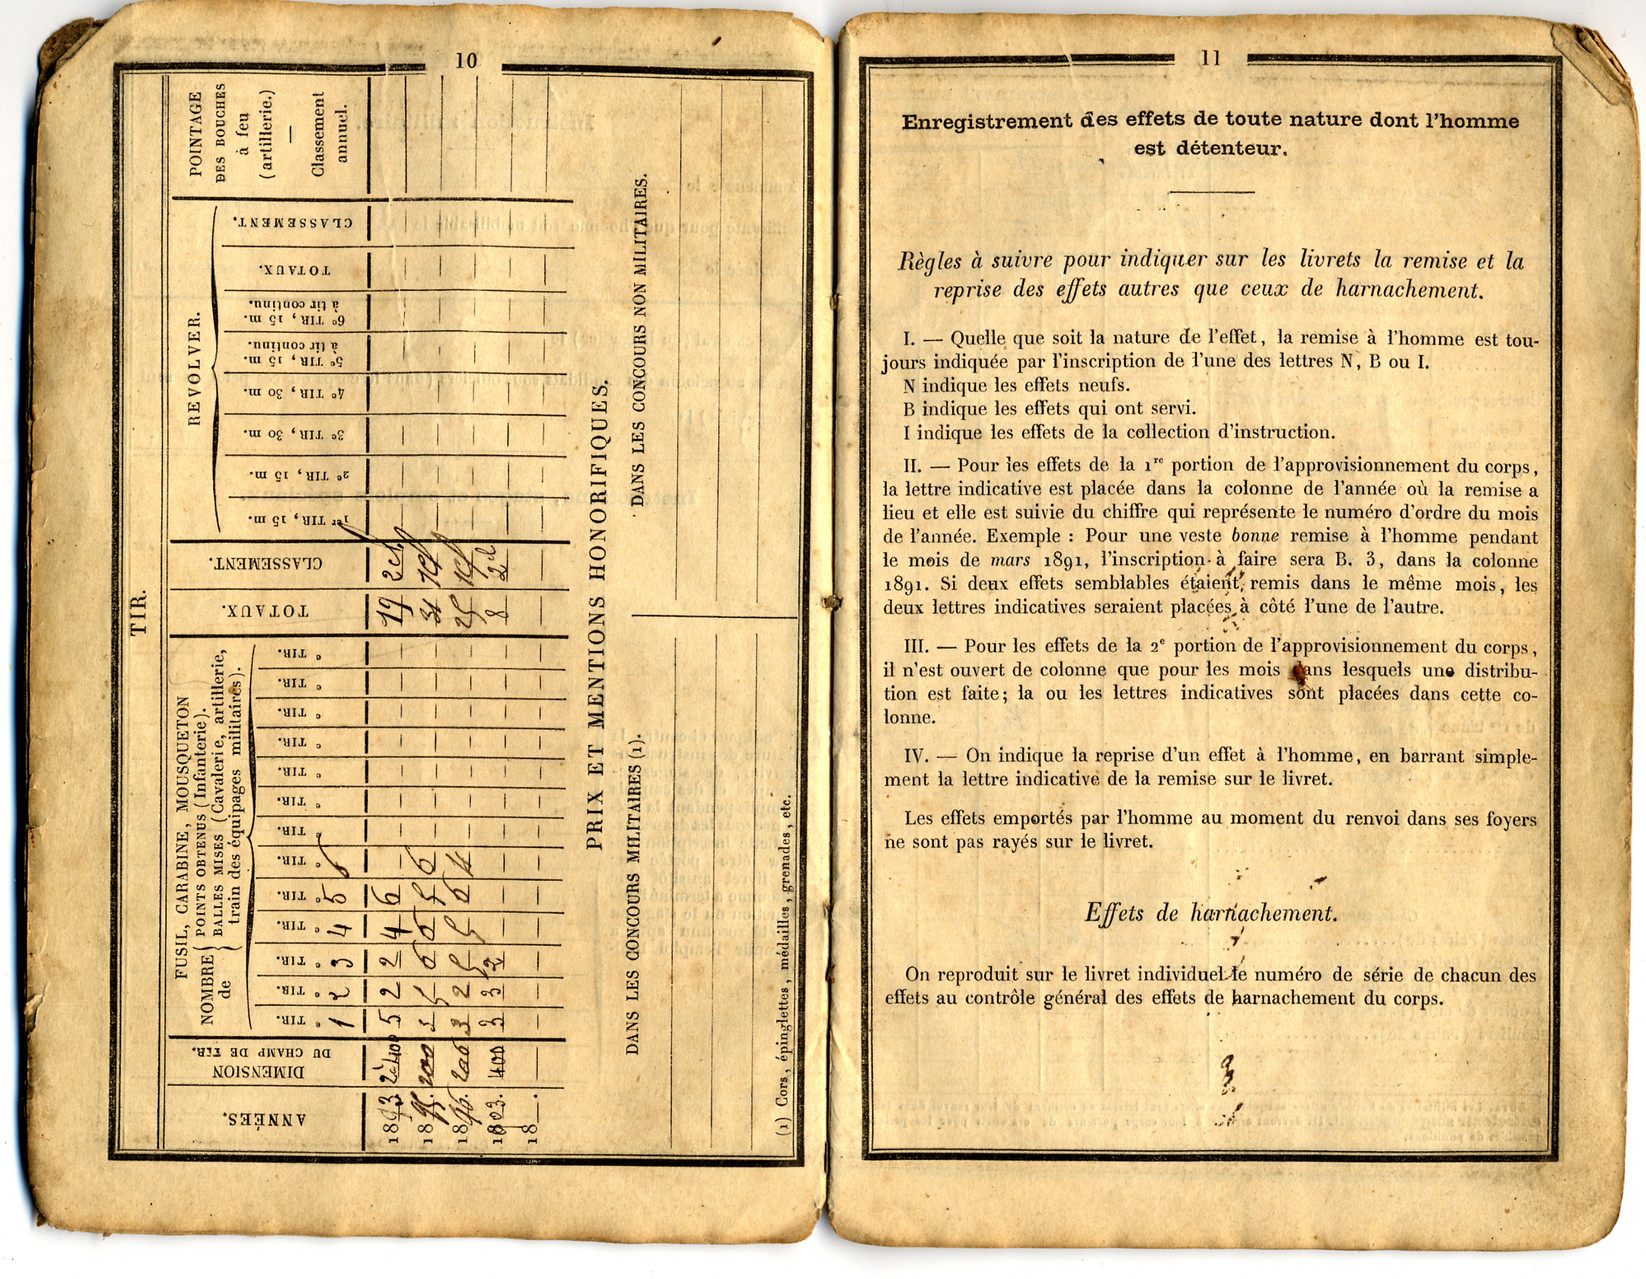 10
TIR.
ANNÉES.
DIMENSION
DU CHAMP DE TIR.
FUSIL, CARABINE, MOUSQUETON
NOMBRE de { POINTS OBTENUS (Infanterie).
BALLES MISES (Cavalerie, artillerie,
train des équipages militaires).
e TIR. 1
e TIR. 2
e TIR. 3
e TIR. 4
e TIR. 5
e TIR. 6
e TIR.
e TIR.
e TIR.
e TIR.
e TIR.
e TIR.
e TIR.
TOTAUX.
CLASSEMENT.
REVOLVER.
1er TIR, 15 m.
2e TIR, 15 m.
3e TIR, 30 m.
4e TIR, 30 m.
5e TIR, 15 m.
à tir continu.
6e TIR, 15 m.
à tir continu.
TOTAUX.
CLASSEMENT.
POINTAGE
DES BOUCHES
à feu
(artillerie.)
—
Classement
annuel.
1893 5 2 2 4 6 19
1895. 200 5 5 6 6 31
1896. 200 3 2 5 5 6 4 25
1803. 400 3 3 2 8
18 .
PRIX ET MENTIONS HONORIFIQUES.
DANS LES CONCOURS MILITAIRES (1).
DANS LES CONCOURS NON MILITAIRES.
(1) Cors, épinglettes, médailles, grenades, etc.
11
Enregistrement des effets de toute nature dont l'homme
est détenteur.
Règles à suivre pour indiquer sur les livrets la remise et la
reprise des effets autres que ceux de harnachement.
I. — Quelle que soit la nature de l'effet, la remise à l'homme est tou-
jours indiquée par l'inscription de l'une des lettres N, B ou I.
N indique les effets neufs.
B indique les effets qui ont servi.
I indique les effets de la collection d'instruction.
II. — Pour les effets de la 1re portion de l'approvisionnement du corps,
la lettre indicative est placée dans la colonne de l'année où la remise a
lieu et elle est suivie du chiffre qui représente le numéro d'ordre du mois
de l'année. Exemple : Pour une veste bonne remise à l'homme pendant
le mois de mars 1891, l'inscription à faire sera B. 3, dans la colonne
1891. Si deux effets semblables étaient remis dans le même mois, les
deux lettres indicatives seraient placées à côté l'une de l'autre.
III. — Pour les effets de la 2e portion de l'approvisionnement du corps,
il n'est ouvert de colonne que pour les mois dans lesquels une distribu-
tion est faite; la ou les lettres indicatives sont placées dans cette co-
lonne.
IV. — On indique la reprise d'un effet à l'homme, en barrant simple-
ment la lettre indicative de la remise sur le livret.
Les effets emportés par l'homme au moment du renvoi dans ses foyers
ne sont pas rayés sur le livret.
Effets de harnachement.
On reproduit sur le livret individuel le numéro de série de chacun des
effets au contrôle général des effets de harnachement du corps.